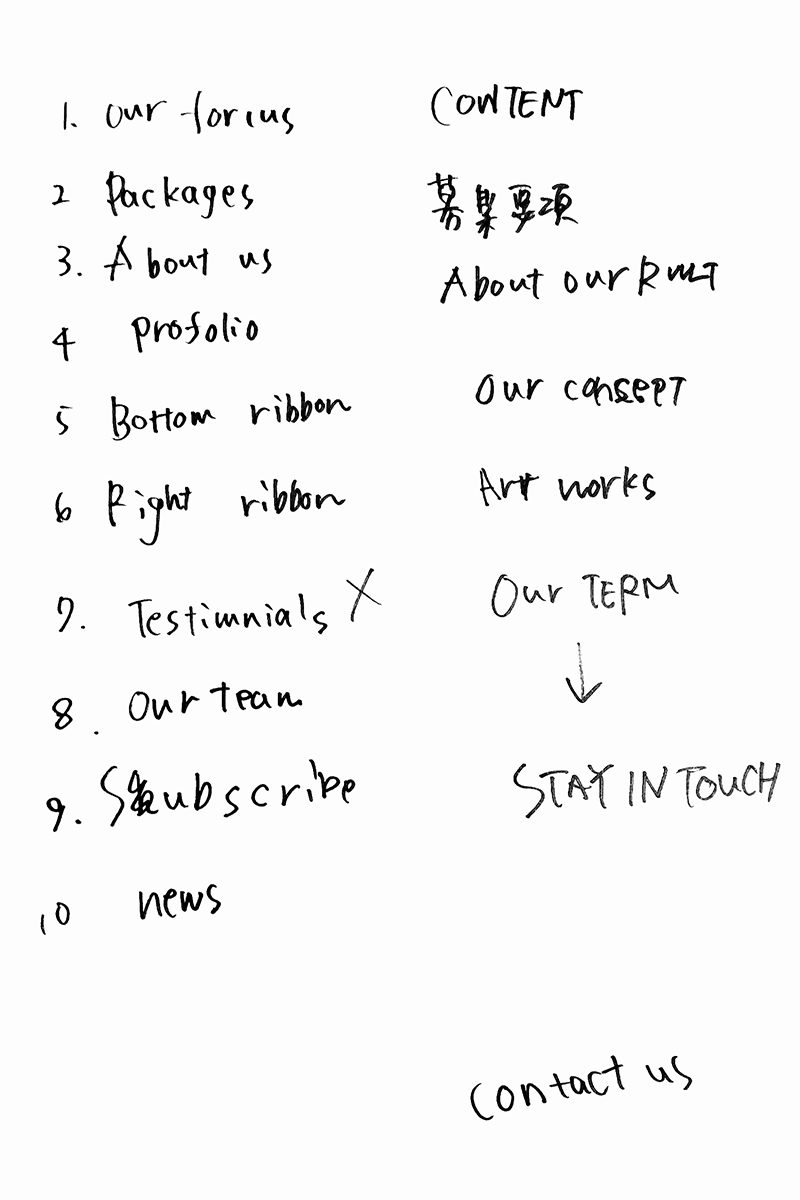 1. our forcus CONTENT
2 Packages 募集要項
3. About us About our RMT
4 profolio
5 Bottom ribbon Our consept
6 Right ribbon Art works
7. Testimnials X Our TERM
8. Our team ↓
9. Subscribe STAY IN TOUCH
10 news
contact us